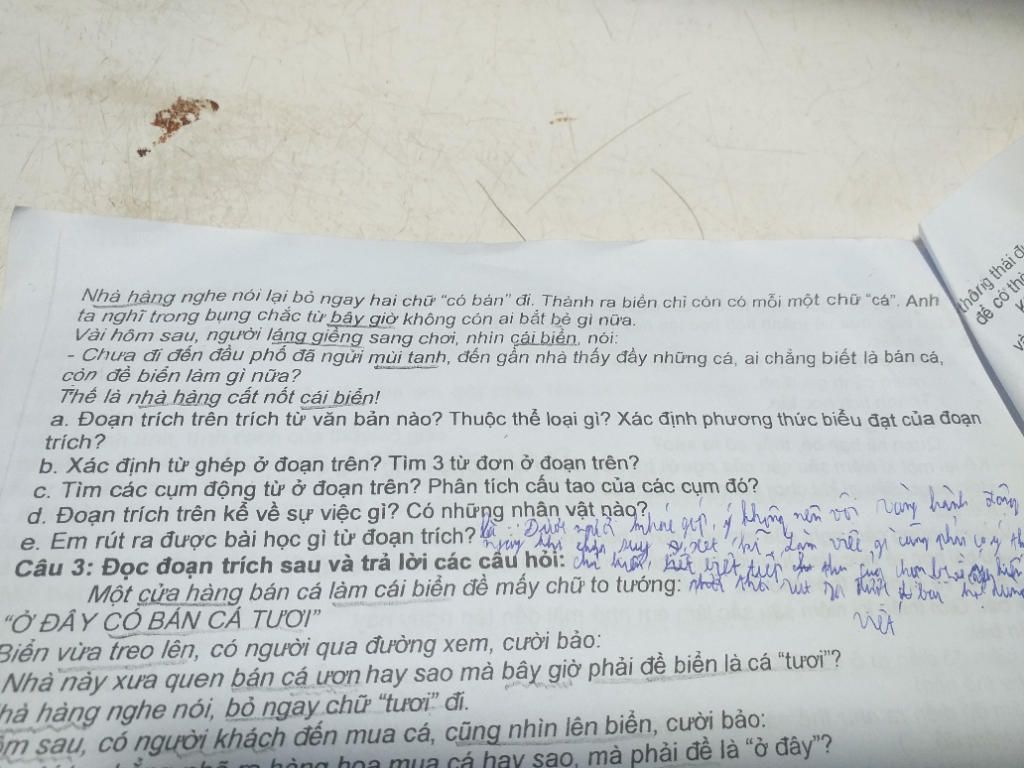 Nhà hàng nghe nói lại bỏ ngay hai chữ “có bán” đi. Thành ra biển chỉ còn có mỗi một chữ “cá”. Anh
ta nghĩ trong bụng chắc từ bây giờ không còn ai bắt bẻ gì nữa.
Vài hôm sau, người láng giềng sang chơi, nhìn cái biển, nói:
- Chưa đi đến đầu phố đã ngửi mùi tanh, đến gần nhà thấy đầy những cá, ai chẳng biết là bán cá,
còn đề biển làm gì nữa?
Thế là nhà hàng cất nốt cái biển!
a. Đoạn trích trên trích từ văn bản nào? Thuộc thể loại gì? Xác định phương thức biểu đạt của đoạn
trích?
b. Xác định từ ghép ở đoạn trên? Tìm 3 từ đơn ở đoạn trên?
c. Tìm các cụm động từ ở đoạn trên? Phân tích cấu tạo của các cụm đó?
d. Đoạn trích trên kể về sự việc gì? Có những nhân vật nào?
e. Em rút ra được bài học gì từ đoạn trích?
không nên vội vàng hành động
ngay khi chưa suy xét kĩ. Làm việc gì cũng phải có ý th
Câu 3: Đọc đoạn trích sau và trả lời các câu hỏi:
Một cửa hàng bán cá làm cái biển đề mấy chữ to tướng:
“Ở ĐÂY CÓ BÁN CÁ TƯƠI”
viết
Biển vừa treo lên, có người qua đường xem, cười bảo:
Nhà này xưa quen bán cá ươn hay sao mà bây giờ phải đề biển là cá “tươi”?
hà hàng nghe nói, bỏ ngay chữ “tươi” đi.
ôm sau, có người khách đến mua cá, cũng nhìn lên biển, cười bảo:
hàng hoa mua cá hay sao, mà phải đề là “ở đây”?
thông thái
đề có